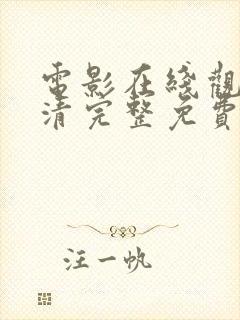 電影在綫觀
清完整免費
汪一帆